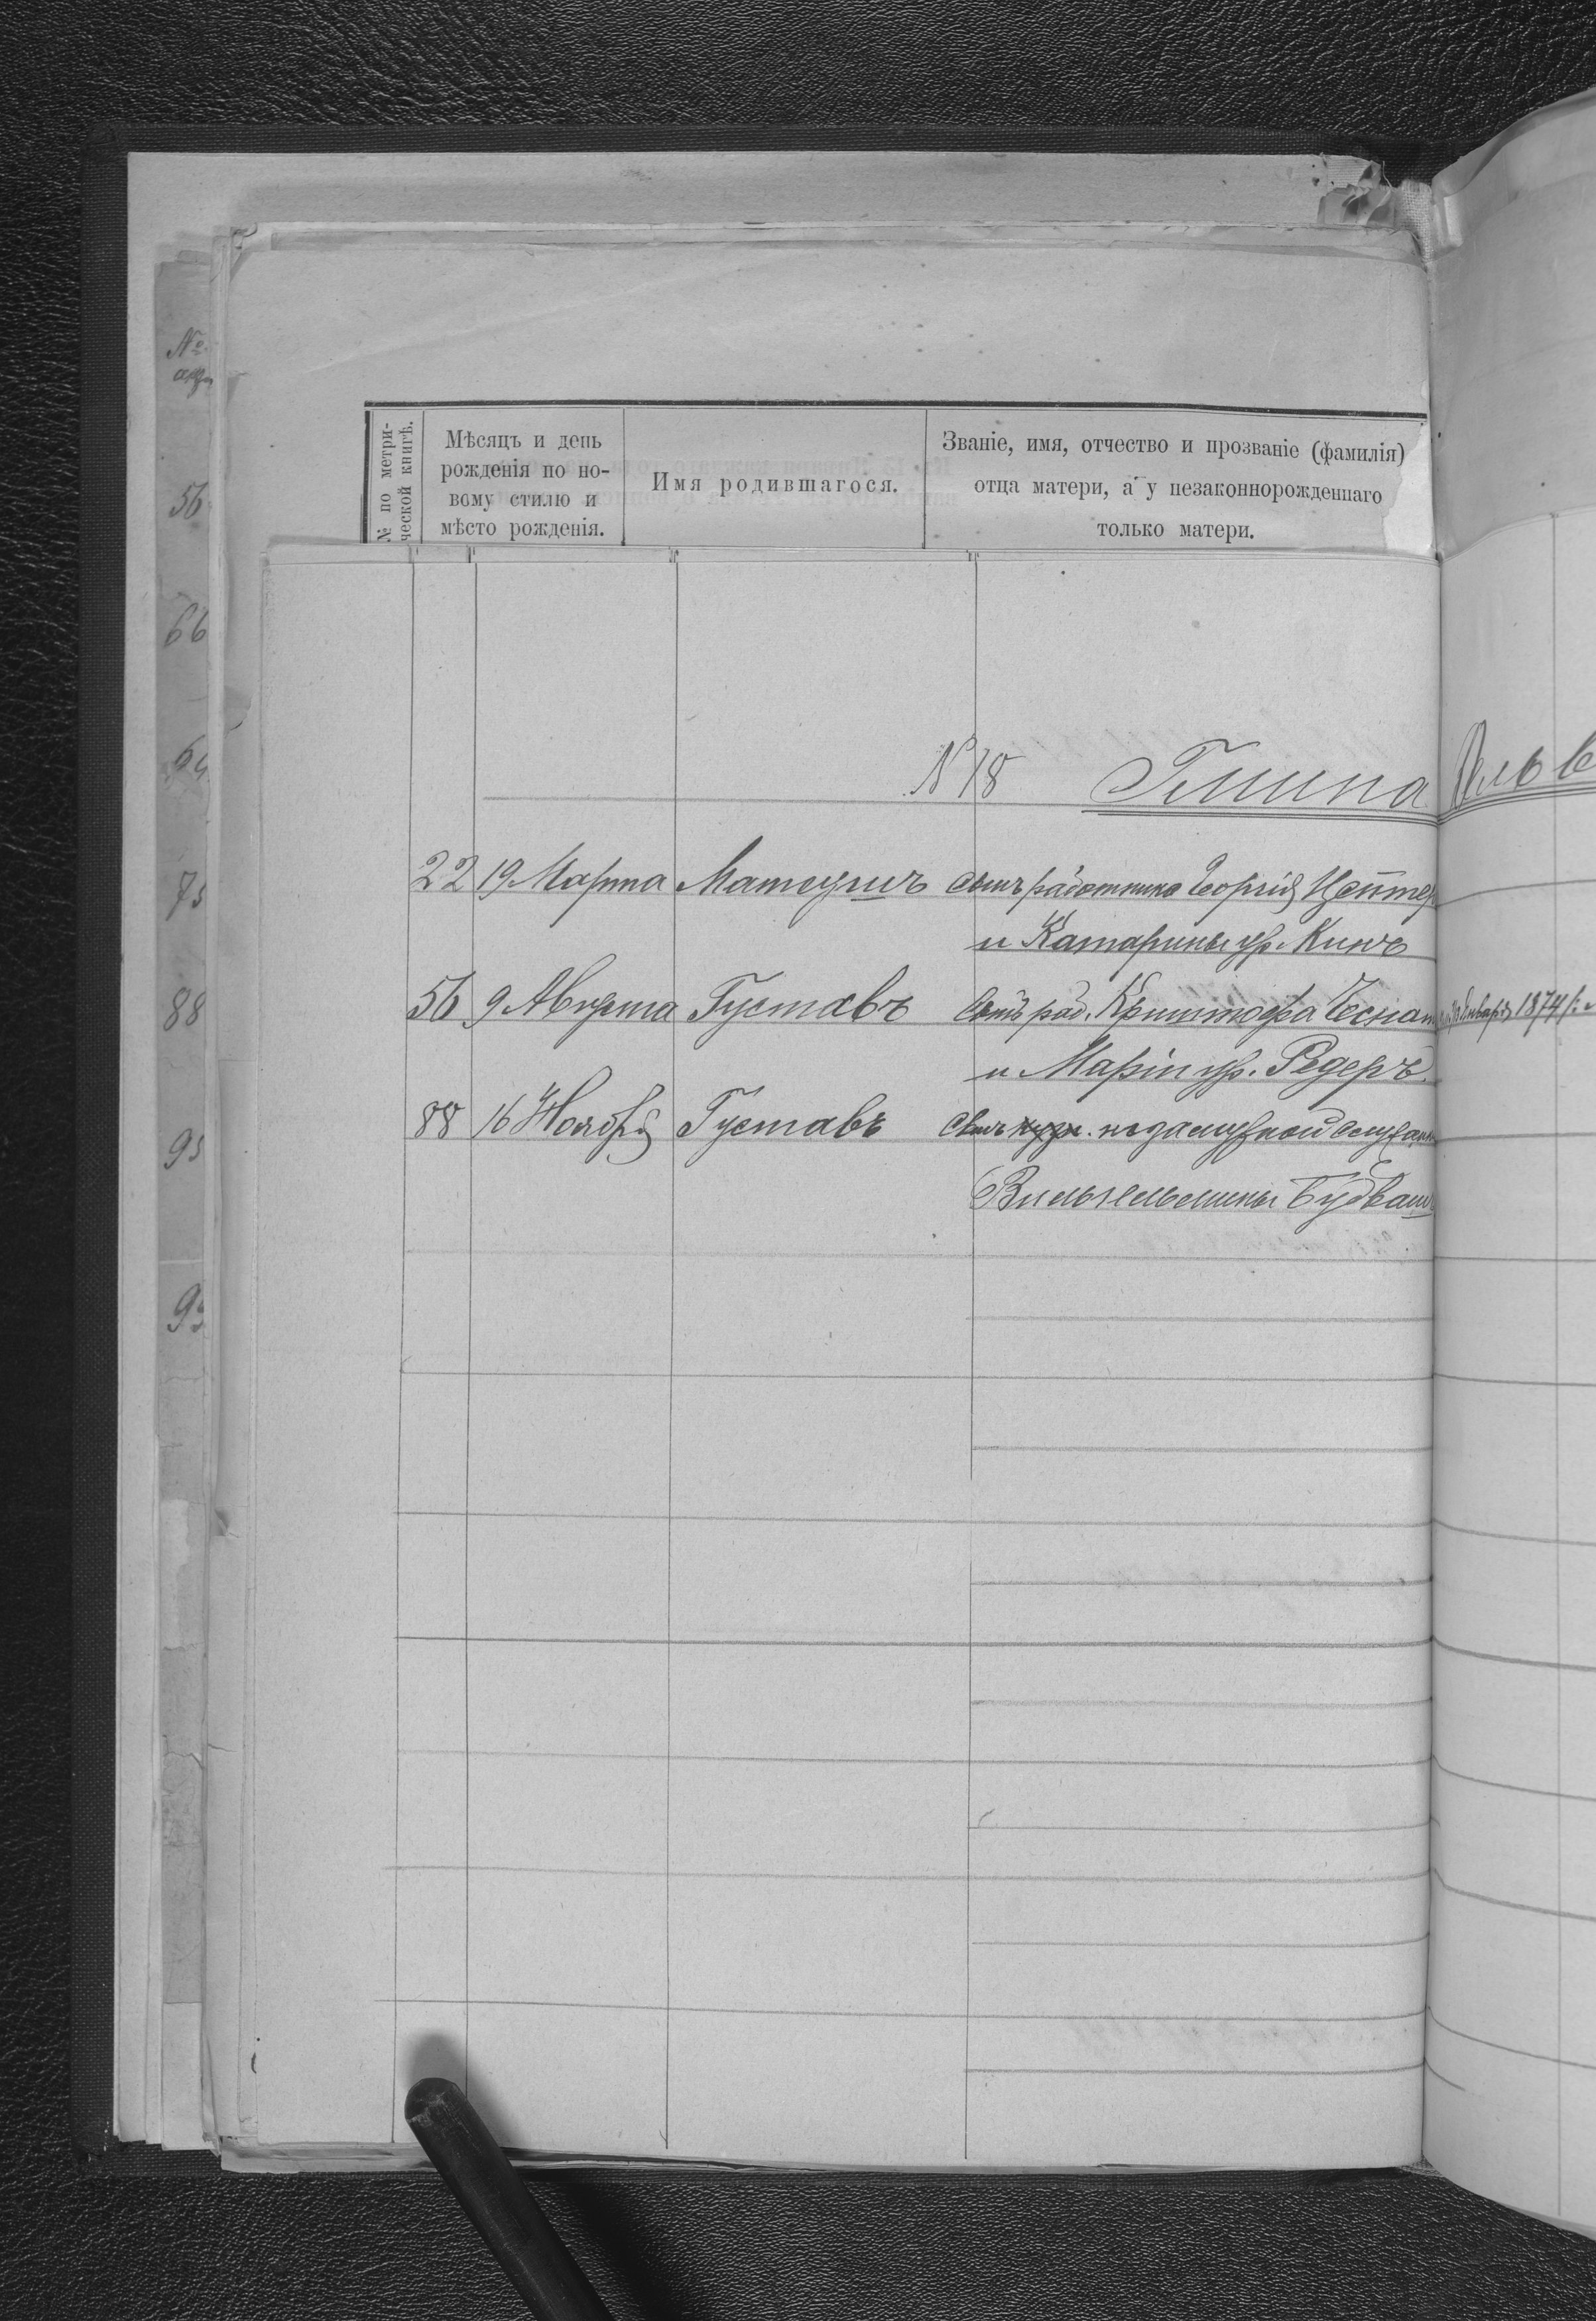 №
акта
56
66
75
88
93
№ по метри-
ческой книгѣ.
Мѣсяцъ и день
рожденія по но-
вому стилю и
мѣсто рожденія.
Имя родившагося.
Званіе, имя, отчество и прозваніе (фамилія)
отца матери, а у незаконнорожденнаго
только матери.
N 18 Гмина
22 19 Марта Матеушъ сынъ работника Георгія
и Катарины ур. Кинъ
56 9 Августа Густавъ сынъ раб. Криштофа
и Маріи ур. Редеръ.
Января 1874
88 16 Ноября Густавъ сынъ незамужной
Вильгельмины